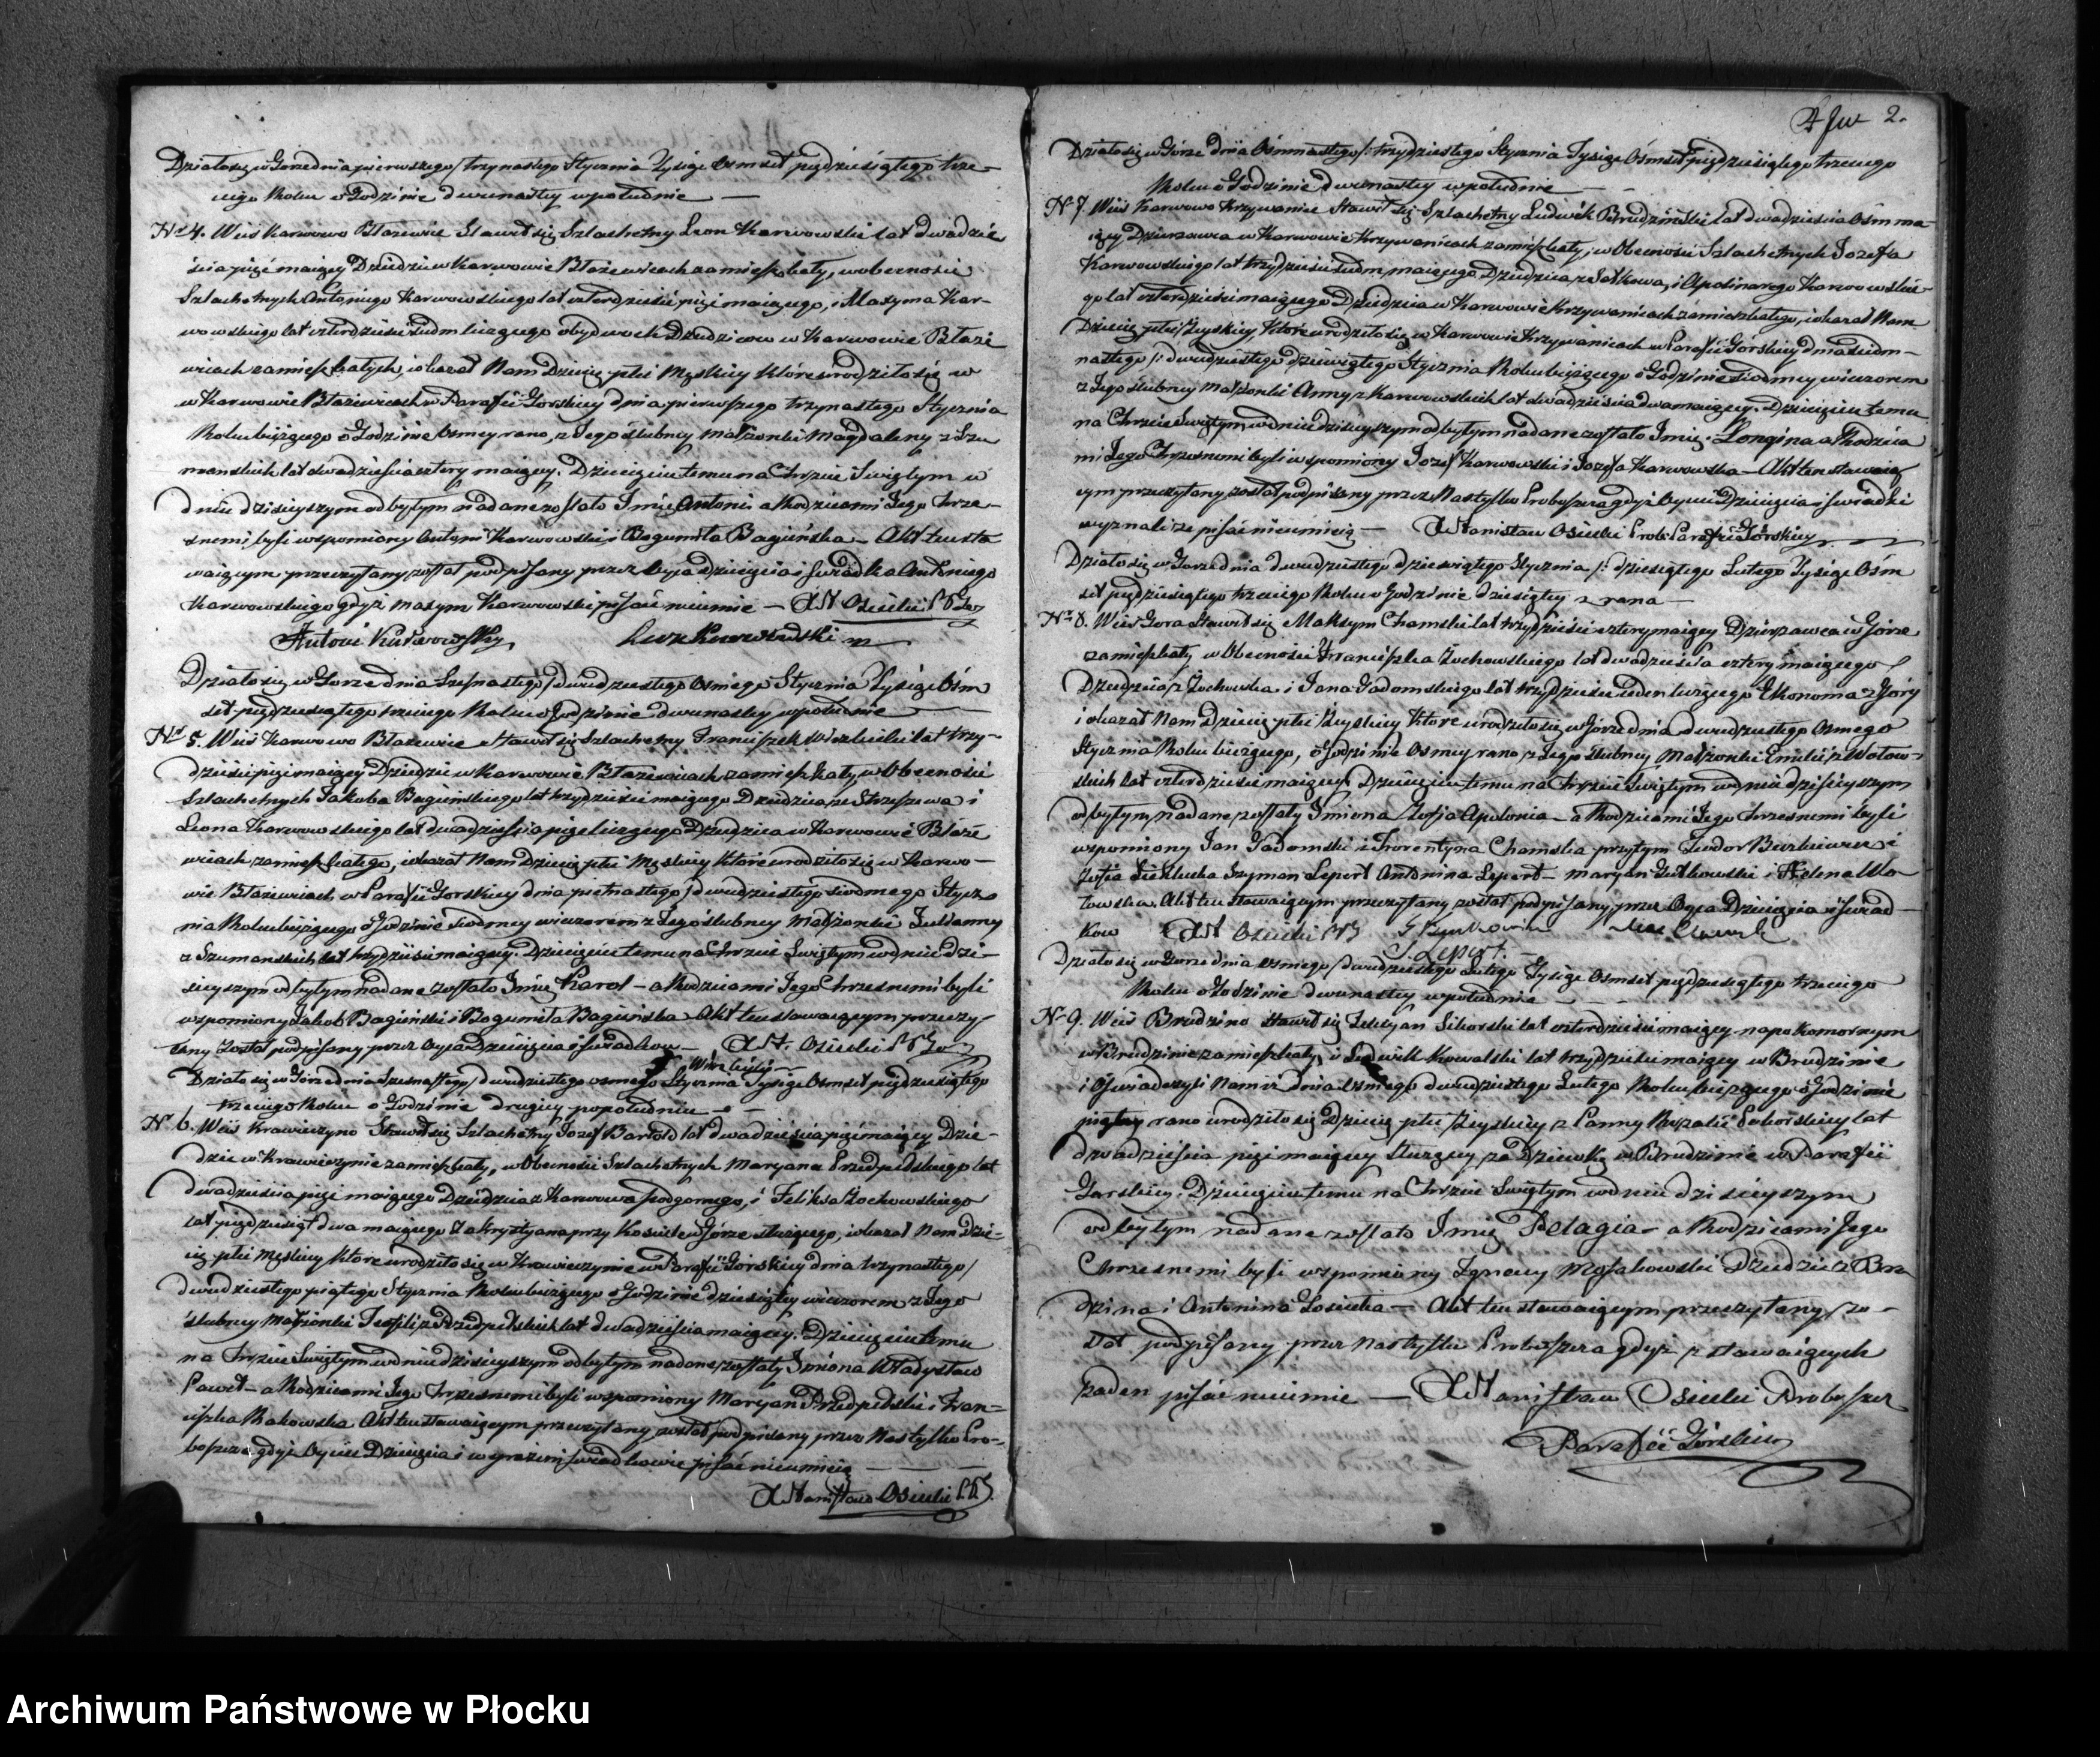 Działo się w Górze dnia pierwszego / trzynastego Stycznia Tysiąc ośmset pięćdziesiątego trze-
ciego Roku o Godzinie dwunastey w południe —
Nr 4. Wieś Karwowo Błażewie Stawił się Szlachetny Leon Karwowski lat dwadzie
ścia pięć maiący Dziedzic w Karwowie Błażewicach zamieszkały, w obecności
Szlachetnych Antoniego Karwowskiego lat czterdzieści pięć maiącego, i Maxyma Kar-
wowskiego lat czterdzieści siedm liczącego obydwoch Dziedziców w Karwowie Błaże
wicach zamieszkałych, i okazał Nam Dziecię płci Męskiey które urodziło się w
w Karwowie Błażewicach w Parafii Górskiey dnia pierwszego trzynastego Stycznia
Roku bieżącego o Godzinie ósmey rano, z Jego ślubney Małżonki Magdaleny z Szu
manskich lat dwadzieścia cztery maiącey. Dziecięciu temu na Chrzcie Swiętym w
dniu dzisieyszym odbytym nadane zostało Imię Antoni a Rodzicami Jego Chrze-
snemi byli wspomniony Antoni Karwowski i Bogumiła Bagińska — Akt ten sta
waiącym przeczytany został podpisany przez Oyca Dziecięcia i świadka Antoniego
Karwowskiego gdyż Maxym Karwowski pisać nieumie — X St Osiecki
Antoni Karwowsky Leon Karwowski
Działo się w Gorze dnia Szesnastego / dwudziestego ósmego Stycznia Tysiąc Ośm
set pięćdziesiątego trzeciego Roku o Godzinie dwunastey w południe
Nr 5. Wieś Karwowo Błażewie stawił się Szlachetny Franciszek lat trzy-
dzieści pięć maiący Dziedzic w Karwowie Błażewicach zamieszkały, w Obecności
Szlachetnych Jakoba Bagińskiego lat trzydzieści maiącego Dziedzica ze Strzeszewa i
Leona Karwowskiego lat dwadzieścia pięć liczącego Dziedzica w Karwowie Błaże
wicach zamieszkałego, i okazał Nam Dziecię płci Męskiey które urodziło się w Karwo-
wie Błażewicach w Parafii Górskiey dnia piętnastego / dwudziestego siodmego Stycz
nia Roku bieżącego o Godzinie siodmey wieczorem z Jego ślubney Małżonki Julianny
z Szumanskich lat trzydzieści maiącey. Dziecięciu temu na Chrzcie Swiętym w dniu dzi-
sieyszym odbytym nadane zostało Imię Karol — a Rodzicami Jego Chrzesnemi byli
wspomniony Jakob Bagiński i Bogumiła Bagińska Akt ten stawaiącym przeczy-
tany został podpisany przez Oyca Dziecięcia i świadków — X St. Osiecki
Działo się w Górze dnia Szesnastego / dwudziestego osmego Stycznia Tysiąc Osmset pięćdziesiątego
trzeciego Roku o Godzinie drugiey popołudniu —
Nr 6. Wieś Krawieczyno Stawił się Szlachetny Jozef Bartold lat dwadzieścia pięć maiący Dzie-
dzic w Krawieczynie zamieszkały, w Obecności Szlachetnych Maryana Przedpełskiego lat
dwadzieścia pięć maiącego Dziedzica z Karwowa Podgornego, i Felixa Żochowskiego
lat pięćdziesiąt dwa maiącego Zakrystyana przy Kościele w Górze służącego, i okazał Nam Dzie-
cię płci Męskiey które urodziło się w Krawieczynie w Parafii Górskiey dnia trzynastego /
dwudziestego piątego Stycznia Roku bieżącego o Godzinie dziesiątey wieczorem z Jego
ślubney Małżonki Teofili z Przedpełskich lat dwadzieścia maiącey. Dziecięciu temu
na Chrzcie Swiętym w dniu dzisieyszym odbytym nadane zostały Imiona Władysław
Paweł — a Rodzicami Jego Chrzesnemi byli wspomniony Maryan Przedpełski i Fran-
ciszka Rakowska. Akt ten stawaiącym przeczytany został podpisany przez Nas tylko Pro-
boszcza gdyż Oyciec Dziecięcia i wyrażeni świadkowie pisać nieumieią —
X Stanisław Osiecki P.P.G.
2.
Działo się w Górze dnia Osmnastego /: trzydziestego Stycznia Tysiąc Ośmset pięćdziesiątego trzeciego
Roku o Godzinie dwunastey w południe —
Nr 7. Wieś Karwowo Krzywanice Stawił się Szlachetny Ludwik Brudziński lat dwadzieścia Ośm ma-
iący Dzierzawca w Karwowie Krzywanicach zamieszkały, w Obecności Szlachetnych Jozefa
Karwowskiego lat trzydzieści siedm maiącego Dziedzica z i Apolinarego Karwowskie-
go lat czterdzieści maiącego Dziedzica w Karwowie Krzywanicach zamieszkałego, i okazał Nam
Dziecię płci Żeyskiey, które urodziło się w Karwowie Krzywanicach w Parafii Górskiey dnia siedm-
nastego /: dwudziestego dziewiątego Stycznia Roku bieżącego o Godzinie siodmey wieczorem
z Jego ślubney Małżonki Anny z Karwowskich lat dwadzieścia dwa maiącey. Dziecięciu temu
na Chrzcie Swiętym w dniu dzisieyszym odbytym nadane zostało Imię Longina a Rodzica
mi Jego Chrzesnemi byli wspomniony Jozef Karwowski i Jozefa Karwowska — Akt ten stawaią
cym przeczytany został podpisany przez Nas tylko Proboszcza gdyż Oyciec Dziecięcia i świadki
wyznali że pisać nieumieią — X Stanisław Osiecki Prob. Parafii Górskiey
Działo się w Gorze dnia dwudziestego dziewiątego Stycznia /: dziesiątego Lutego Tysiąc Ośm
set pięćdziesiątego trzeciego Roku o Godzinie dziesiątey z rana —
Nr 8. Wieś Gora Stawił się Maksym Chamski lat trzydzieści cztery maiący Dzierzawca w Górze
zamieszkały w Obecności Franciszka Żochowskiego lat dwadzieścia cztery maiącego
Dziedzica z Żochowska i Jana Gadomskiego lat trzydzieści ieden liczącego Ekonoma z Góry
i okazał Nam Dziecię płci Żeyskiey które urodziło się w Górze dnia dwudziestego Osmego
Stycznia Roku bieżącego, o Godzinie Osmey rano z Jego ślubney Małżonki Emilii z Wołow-
skich lat czterdzieści maiącey Dziecięciu temu na Chrzcie Swiętym w dniu dzisieyszym
odbytym, nadane zostały Imiona Zofia Apolonia — a Rodzicami Jego Chrzesnemi byli
wspomniony Jan Gadomski i Florentyna Chamska przytym Teodor i
Zofia Szymon Lepert Antonina Lepert — Maryan Gutkowski i Helena Wo
łowska. Akt ten stawaiącym przeczytany został podpisany przez Oyca Dziecięcia i świad-
kow X St Osiecki
Lepert.
Działo się w Gorze dnia osmego / dwudziestego Lutego Tysiąc Osmset pięćdziesiątego trzeciego
Roku o Godzinie dwunastey w południe —
Nr 9. Wieś Brudzino stawił się Felicyan Sikorski lat czterdzieści maiący na pokomornym
w Brudzinie zamieszkały, i Ludwik Kowalski lat trzydzieści maiący w Brudzinie
i Oświadczyli Nam iż dnia osmego dwudziestego Lutego Roku bieżącego o Godzinie
piątey rano urodziło się Dziecię płci Żeyskiey z Panny Rozalii Sikorskiey lat
dwadzieścia pięć maiącey służącey za Dziewkę w Brudzinie w Parafii
Gorskiey, Dziecięciu temu na Chrzcie Swiętym w dniu dzisieyszym
odbytym nadane zostało Imię Pelagia — a Rodzicami Jego
Chrzesnemi byli wspomniony Ignacy Mosakowski Dziedzic z Bru
dzina i Antonina Łosicka — Akt ten stawaiącym przeczytany zo-
stał podpisany przez Nas tylko Proboszcza gdyż z stawaiących
żaden pisać nieumie — X Stanisław Osiecki Proboszcz
Parafii Górskiey
Archiwum Państwowe w Płocku